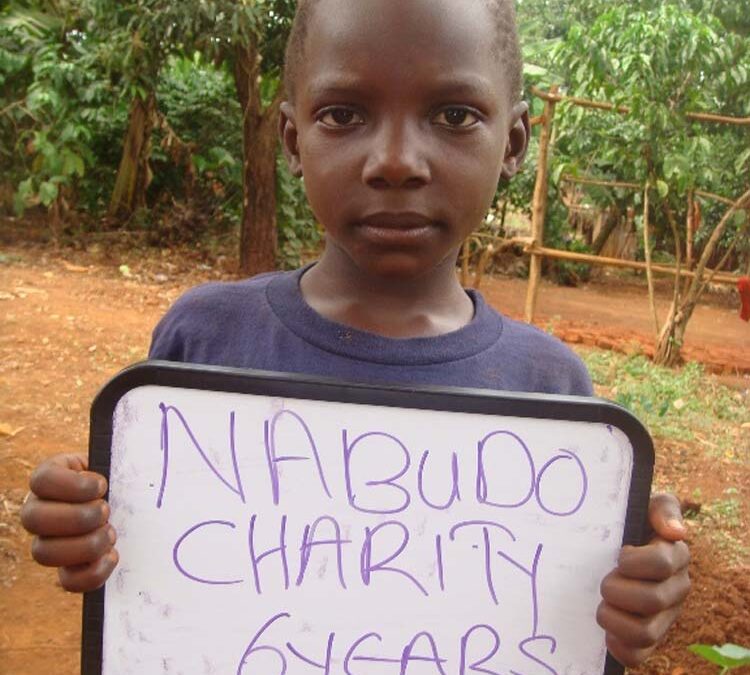 NABUDO
CHARITY
6 YEARS